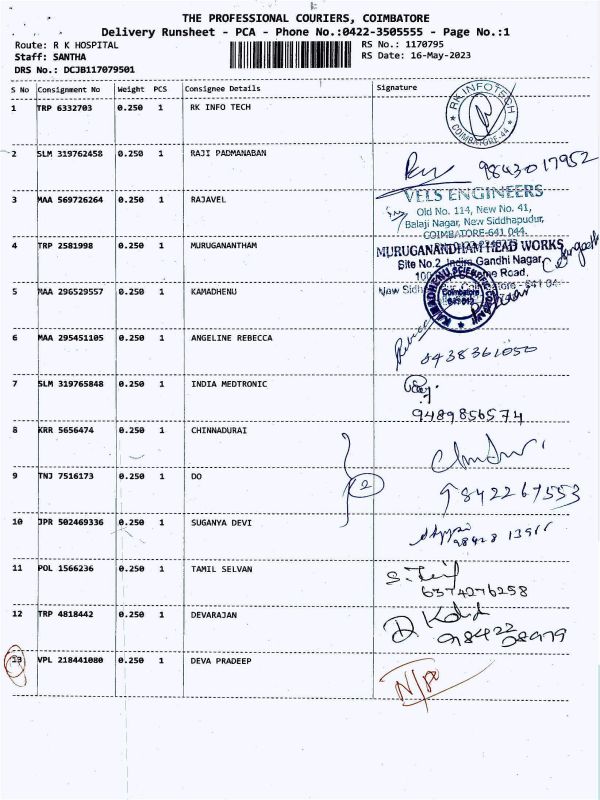 THE PROFESSIONAL COURIERS, COIMBATORE
Delivery Runsheet - PCA - Phone No.:0422-3505555 - Page No.:1
Route: R K HOSPITAL
RS No.: 1170795
Staff: SANTHA
RS Date: 16-May-2023
DRS No.: DCJB117079501
S No Consignment No Weight PCS Consignee Details Signature
1 TRP 6332703 0.250 1 RK INFO TECH
RK INFOTECH
COIMBATORE-44
2 SLM 319762458 0.250 1 RAJI PADMANABAN
9843017952
3 MAA 569726264 0.250 1 RAJAVEL
VELS ENGINEERS
Old No. 114, New No. 41,
Balaji Nagar, New Siddhapudur,
COIMBATORE-641 044.
4 TRP 2581998 0.250 1 MURUGANANTHAM
MURUGANANDHAM HEAD WORKS
Site No.2, Indira Gandhi Nagar,
Road,
5 MAA 296529557 0.250 1 KAMADHENU
6 MAA 295451105 0.250 1 ANGELINE REBECCA
8438361050
7 SLM 319765848 0.250 1 INDIA MEDTRONIC
9489856574
8 KRR 5656474 0.250 1 CHINNADURAI
9 TNJ 7516173 0.250 1 DO
2
9842267553
10 JPR 502469336 0.250 1 SUGANYA DEVI
11 POL 1566236 0.250 1 TAMIL SELVAN
6374076258
12 TRP 4818442 0.250 1 DEVARAJAN
98422 08979
13 VPL 218441080 0.250 1 DEVA PRADEEP